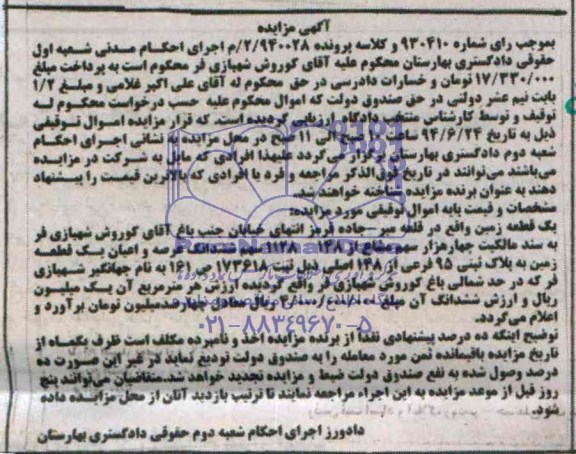 آگهی مزایده
بموجب رای شماره ۹۳۰۴۱۰ و کلاسه پرونده ۲/۹۴۰۰۲۸/م اجرای احکام مدنی شعبه اول
حقوقی دادگستری بهارستان محکوم علیه آقای کوروش شهبازی فر محکوم است به پرداخت مبلغ
۱۷/۳۳۰/۰۰۰ تومان و خسارات دادرسی در حق محکوم له آقای علی اکبر غلامی و مبلغ ۱/۲
بابت نیم عشر دولتی در حق صندوق دولت که اموال محکوم علیه حسب درخواست محکوم له
توقیف و توسط کارشناس منتخب دادگاه ارزیابی گردیده است. که قرار مزایده اموال توقیفی
ذیل به تاریخ ۹۴/۶/۲۴ الی ۱۱ صبح در محل مزایده به نشانی اجرای احکام
شعبه دوم دادگستری بهارستان برگزار می‌گردد علیهذا افرادی که مایل به شرکت در مزایده
می‌باشند می‌توانند در تاریخ فوق‌الذکر مراجعه و فرد یا افرادی که بالاترین قیمت را پیشنهاد
دهند به عنوان برنده مزایده شناخته خواهند شد.
مشخصات و قیمت پایه اموال توقیفی مورد مزایده:
یک قطعه زمین واقع در قلعه میر جاده قرمز انتهای خیابان جنب باغ آقای کوروش شهبازی فر
به سند مالکیت چهارهزار سهم مشاع از ۱۱۲۸ سهم ششدانگ عرصه و اعیان یک قطعه
زمین به پلاک ثبتی ۹۵ فرعی از ۱۴۸ اصلی ذیل ثبت ۱۷۳۴۱۸ به نام جهانگیر شهبازی
فر که در حد شمالی باغ کوروش شهبازی فر واقع گردیده ارزش هر مترمربع آن یک میلیون
ریال و ارزش ششدانگ آن مبلغ ۴/۰۰۰/۰۰۰/۰۰۰ ریال معادل چهارصدمیلیون تومان برآورد و
اعلام می‌گردد.
توضیح اینکه ده درصد پیشنهادی نقدا از برنده مزایده اخذ و نامبرده مکلف است ظرف یکماه از
تاریخ مزایده باقیمانده ثمن مورد معامله را به صندوق دولت تودیع نماید در غیر این صورت ده
درصد وصول شده به نفع صندوق دولت ضبط و مزایده تجدید خواهد شد.متقاضیان می‌توانند پنج
روز قبل از موعد مزایده به این اجراء مراجعه نمایند تا ترتیب بازدید آنان از محل مزایده داده
شود.
دادورز اجرای احکام شعبه دوم حقوقی دادگستری بهارستان
۰۲۱-۸۸۳۴۹۶۷۰-۵